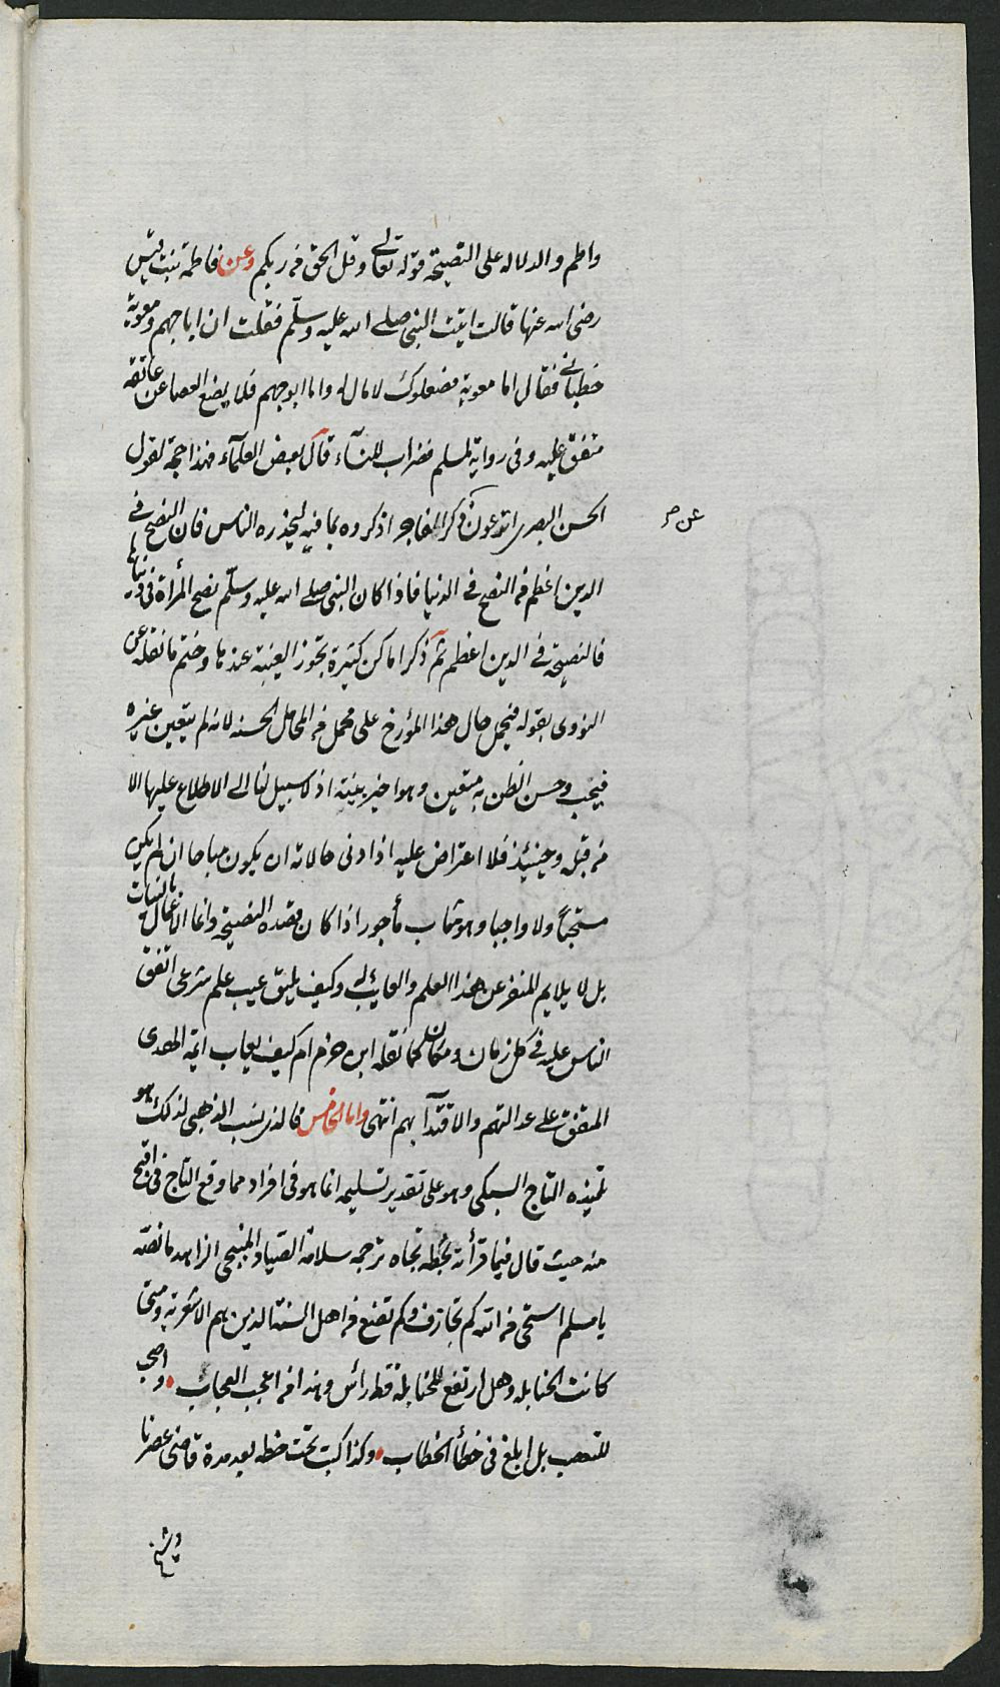 واطم والدلاله على النصيحة قوله تعالى وقل الحق من ربكم وعن فاطمة بنت قيس
رضى الله عنها قالت اتيت النبى صلى الله عليه وسلم فقلت ان ابا جهم ومعوية
خطبانى فقال اما معوية فصعلوك لا مال له واما ابو جهم فلا يضع العصا عن عاتقه
متفق عليه وفى رواية لمسلم فضراب للنسآء قال بعض العلمآء فهذا حجة لقول
الحسن البصرى اترعون عن ذكر الفاجر اذكروه بما فيه ليحذره الناس فان النصح فى
عن صح
الدين اعظم من النصح فى الدنيا فاذا كان النبى صلى الله عليه وسلم نصح المرأة فى دنياها
فالنصيحة فى الدين اعظم ثم ذكر اماكن كثيرة تجوز الغيبة عندها وختم ما نقله عن
النووى بقوله فيحمل حال هذا المؤرخ على محمل من المحامل الحسنه لانه لم يتعين غيره
فيجب وحسن الظن به متعين وهو اخبر بنيته اذ لا سبيل لنا الى الاطلاع عليها الا
من قبله وحينئذ فلا اعتراض عليه اذ ادنى حالاته ان يكون مباحا ان لم يكن
مستحباً ولا واجبا وهو مثاب مأجور اذا كان قصده النصيحة وانما الاعمال بالنيات
بل لا يلايم المنفر عن هذا العلم والعايب له وكيف يليق عيب علم شرعى اتفق
الناس عليه فى كل زمان ومكان كما نقله ابن حزم ام كيف يعاب ايمة الهدى
المتفق على عدالتهم والاقتدآ بهم انتهى واما الخامس فالذى نسب الذهبى لذلك هو
تلميذه التاج السبكى وهو على تقدير تسليمه انما هو فى افراد مما وقع التاج فى اقبح
منه حيث قال فيما قرأته بخطه تجاه ترجمه سلامة الصياد المنبجى الزاهد ما نصه
يا مسلم استحى من الله كم تجازف وكم تضع من اهل السنة الذين هم الاشعرية ومتى
كانت الحنابلة وهل ارتفع للحنابلة قط رأس وهذا من اعجب العجاب واصحب
للتعصب بل ابلغ فى خطأ الخطاب وكذا كتب تحت خطه بعد مدة قاضى عصرنا